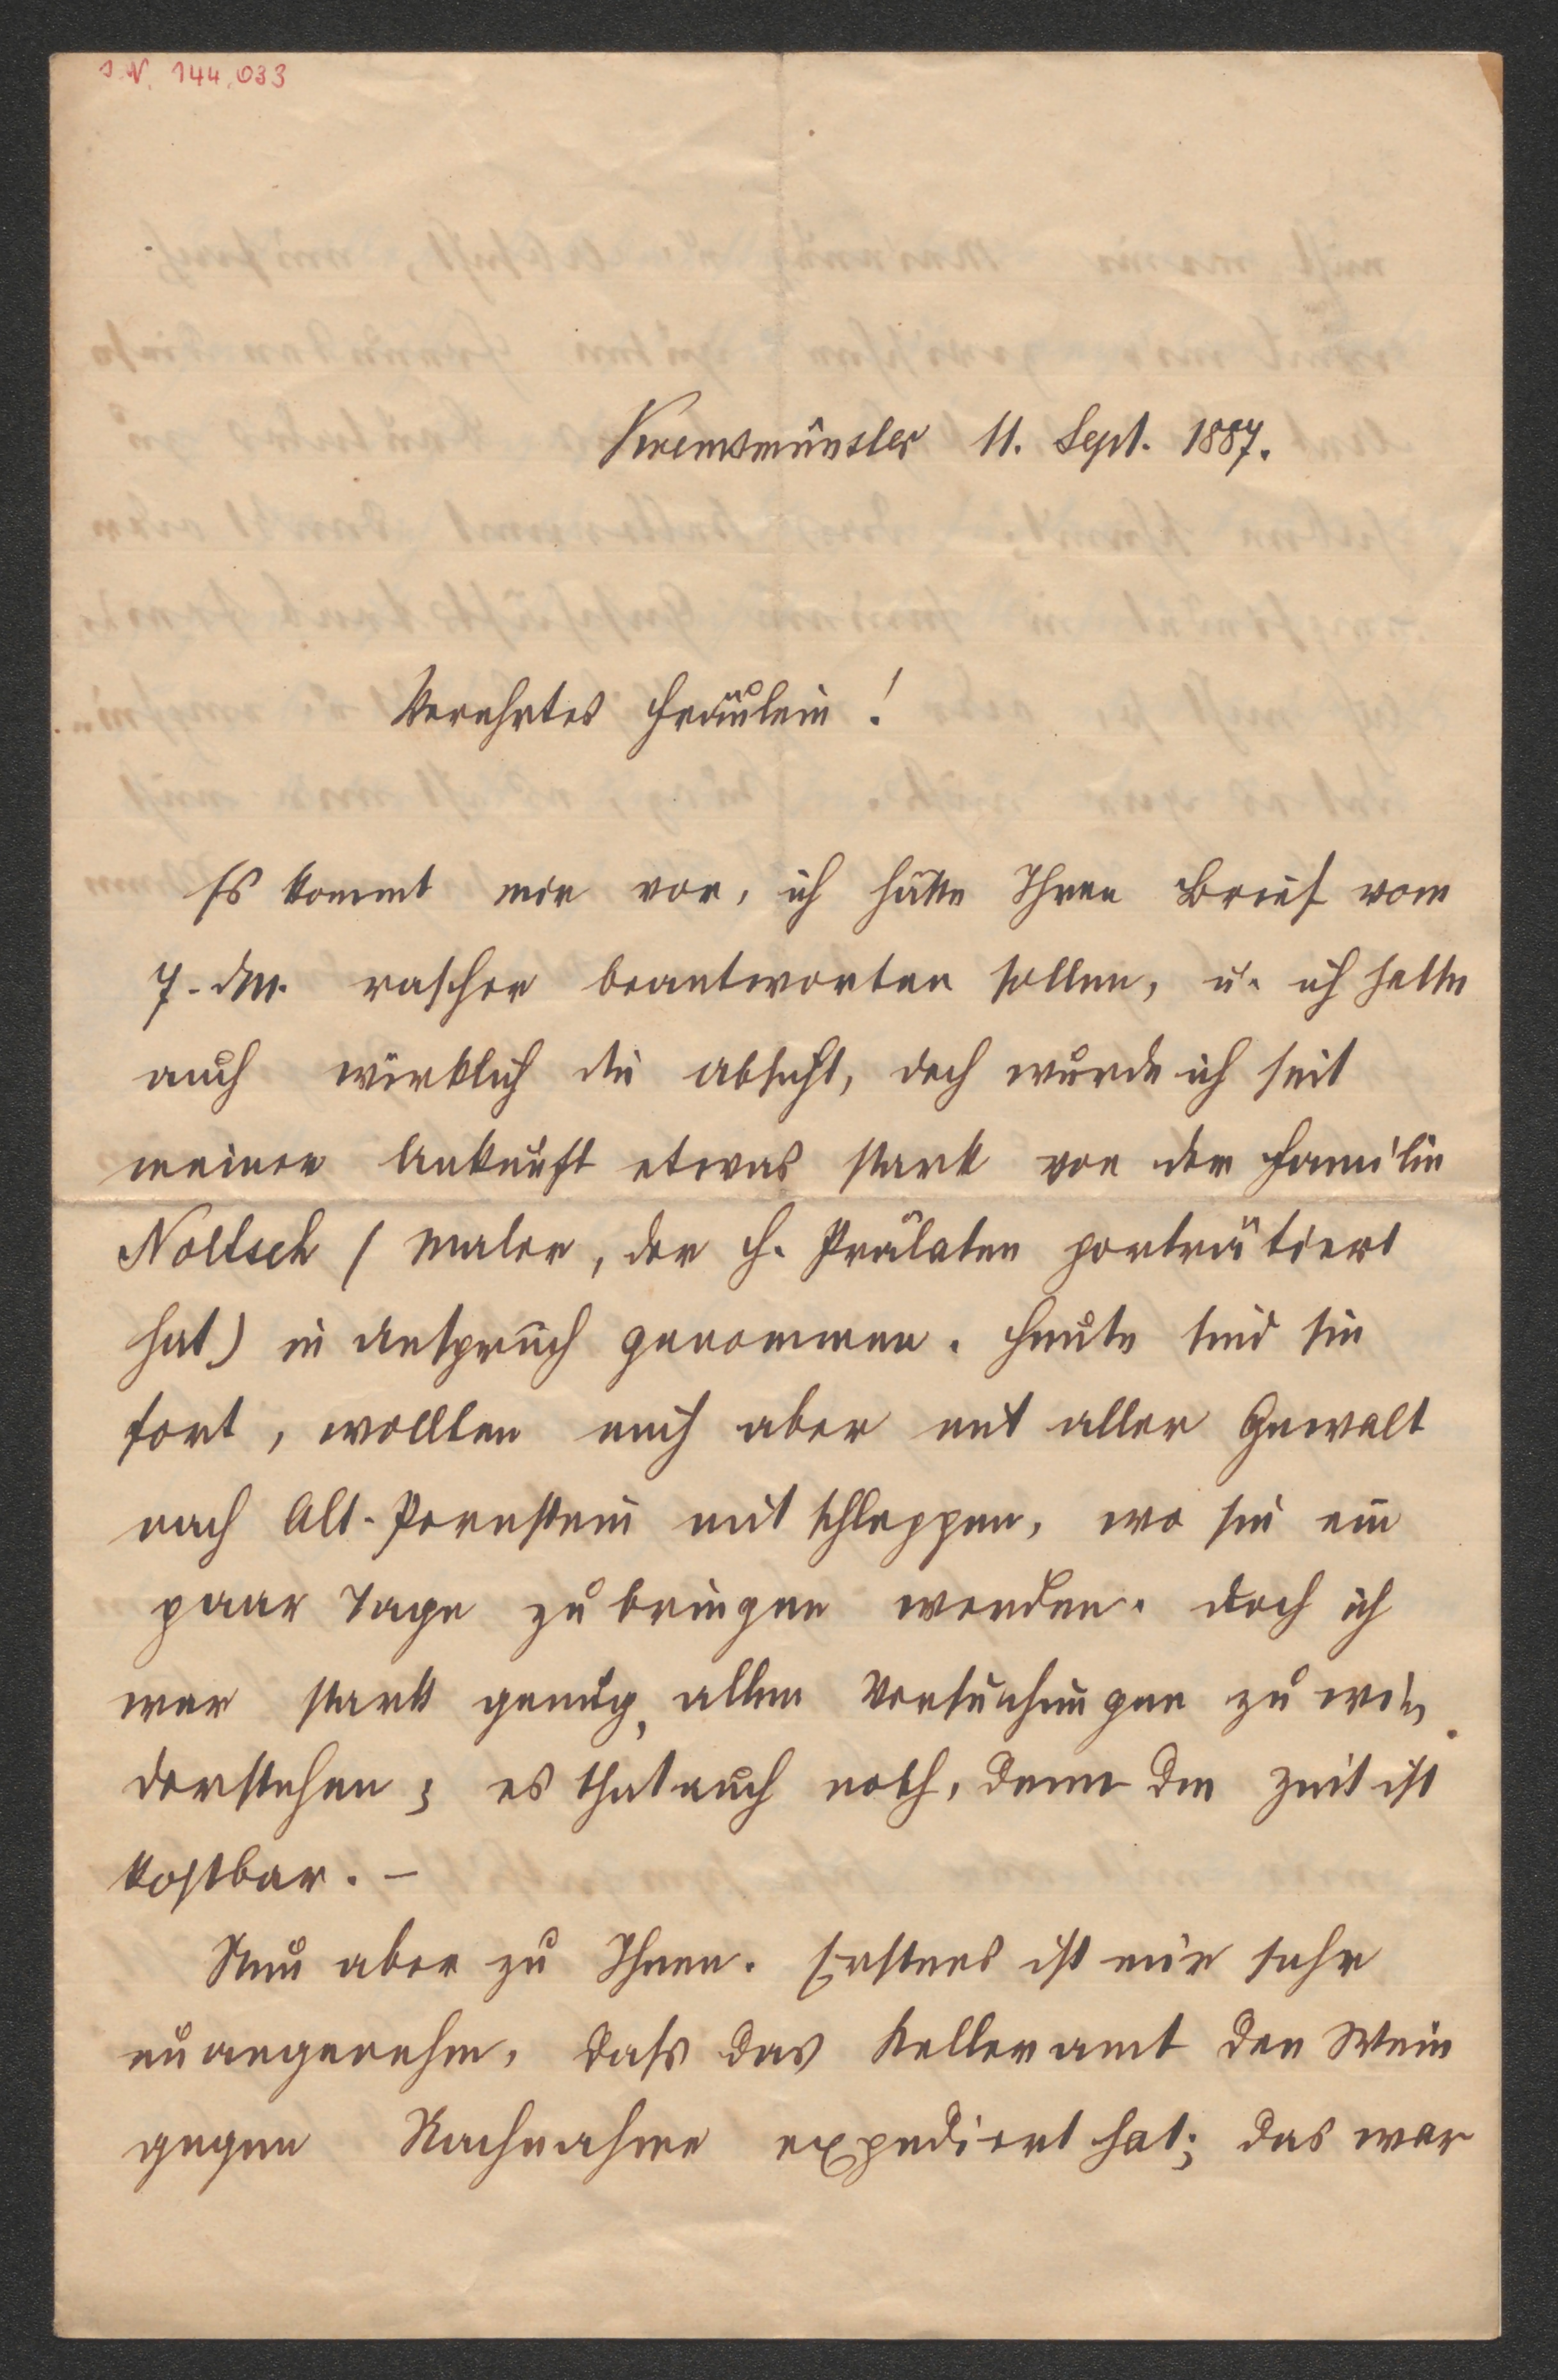 I. N. 144.033
Kremsmünster 11. Sept. 1887.
Verehrtes Fräulein!
Es kommt mir vor, ich hätte Ihren Brief vom
7. dM. rascher beantworten sollen, u. ich hatte
auch wirklich die Absicht, doch wurde ich seit
meiner Ankunft etwas stark von der Familie
Noltsch (Maler, der H. Prälaten porträtiert
hat) in Anspruch genommen. Heute sind sie
fort, wollten mich aber mit aller Gewalt
nach Alt-Pernstein mit schleppen, wo sie ein
paar Tage zubringen werden. Doch ich
war stark genug, allen Versuchungen zu wi-
derstehen; es that auch noth, denn die Zeit ist
kostbar. –
Nun aber zu Ihnen. Erstens ist mir sehr
unangenehm, dass das Kelleramt den Wein
gegen Nachnahme expediert hat; das war